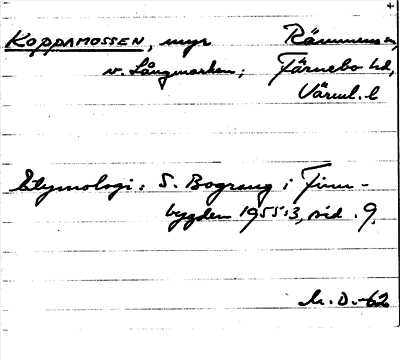 KOPPAMOSSEN, myr Rämmens sn,
v. Långmarken; Färnebo hd,
Värml. l.
Etymologi: S. Bograng i Finn-
bygden 1955:3, sid. 9.
M. D. -62